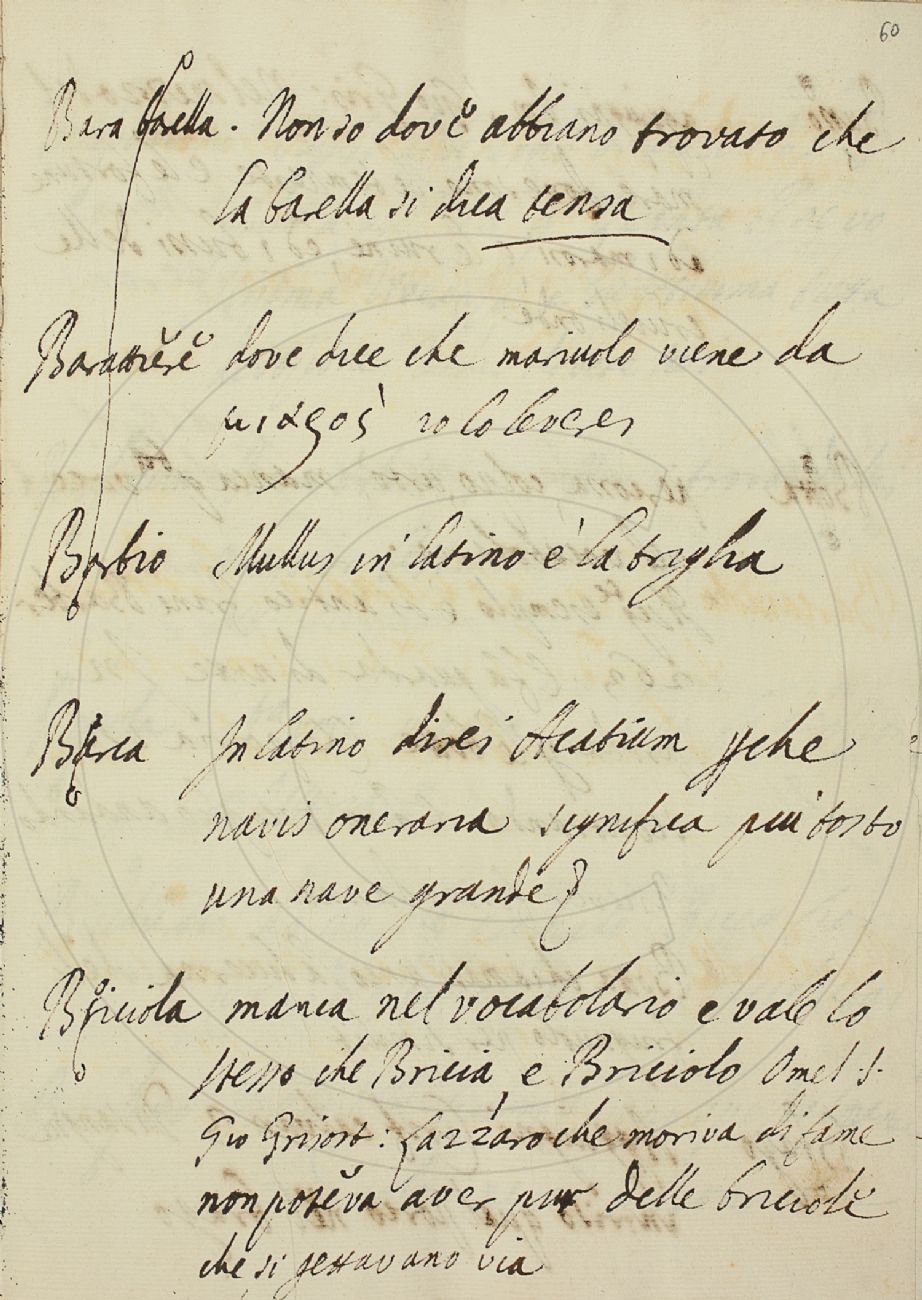 60
Bara barella. Non so dove abbiano trovato che
la barella si dica tensa
Barattiere dove dice che mariuolo viene da
μιαρὸς io lo leverei
Barbio Mullus in latino è la triglia
Barca In latino direi Acatium pche
navis oneraria significa più tosto
una nave grande
Briciola manca nel vocabolario e vale lo
stesso che Bricia, e Briciolo Omel. S.
Gio Grisost: Lazzaro che moriva di fame
non poteva aver pur delle briciole
che si gettavano via